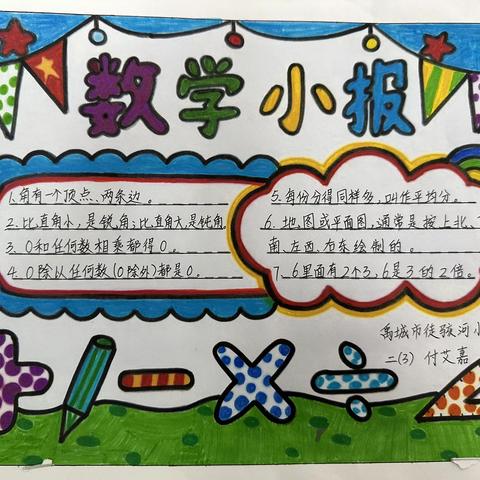 数学小报
1.角有一个顶点、两条边。
2.比直角小,是锐角;比直角大,是钝角。
3.0和任何数相乘都得0。
4.0除以任何数(0除外)都是0。
5.每份分得同样多,叫作平均分。
6.地图或平面图,通常是按上北、
南、左西、右东绘制的。
7.6里面有2个3,6是3的2倍。
禹城市徒骇河小
二(3) 付艾嘉